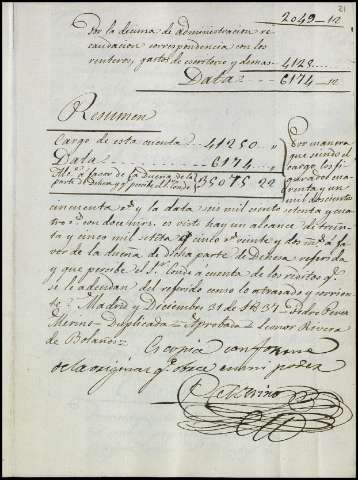 21
2049_12
Por la decima de administracion re
caudacion correspondencia con los
renteros, gastos de escritorio y demas 4125
Data 6174_12
Resumen
Cargo de esta cuenta 41250 "
Data 6174
Alc.e a favor de la dueña de la
parte de Dehesa y q.e percibe el S.r Conde 35075 22
Por manera
que siendo el
cargo los fi
gurados cua
renta y un
mil doscientos
cincuenta r.s y la data seis mil ciento setenta y cua
tro r.s con doce mrs, es visto hay un alcance de trein
ta y cinco mil setenta y cinco r.s veinte y dos m.s a fa
vor de la dueña de dicha parte de Dehesa referida
y que percibe el S.r Conde a cuenta de los reditos q.e
se le adeudan del referido como lo atrasado y corrien
te = Madrid y Diciembre 31 de 1837 = Pedro Perez
Merino = Duplicada = Aprobada = Leonor Rivera
de Bolaños =
Es copia conforme
de la original q.e obra en mi poder
P. Merino